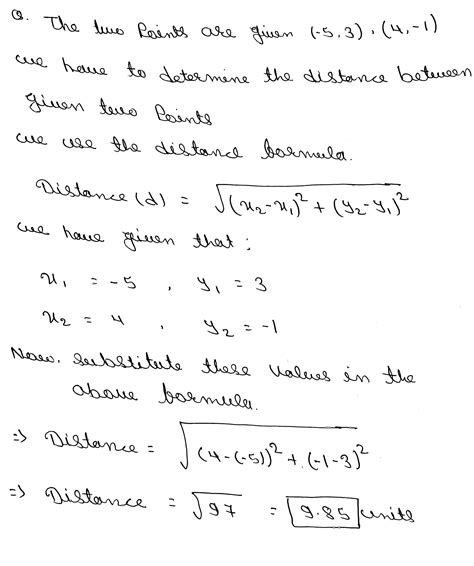 Q. The two Points are given (-5,3), (4,-1)
we have to determine the distance between
given two Points
we use the distance formula.
Distance (d) = √(x₂-x₁)² + (y₂-y₁)²
we have given that :
x₁ = -5 , y₁ = 3
x₂ = 4 , y₂ = -1
Now. Substitute these values in the
above formula.
=> Distance = √(4-(-5))² + (-1-3)²
=> Distance = √97 = 9.85 units